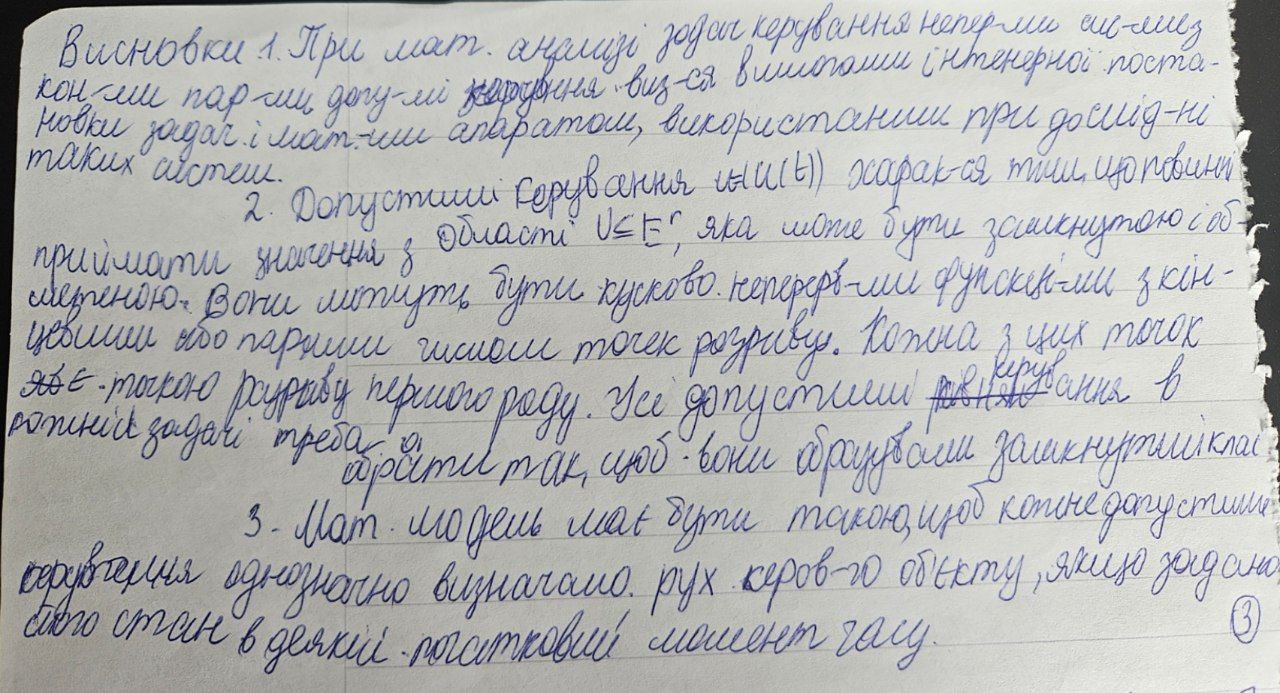 Висновки 1. При мат. аналізі задач керування непер-ми сис-ми з
кон-ми пар-ми допу-мі керування виз-ся вимогами інтенерної поста-
новки задач і мат-им апаратом, використаним при дослід-ні
таких систем.
2. Допустимі керування u=u(t) харак-ся тим, що повинні
приймати значення з області U⊆E^r, яка може бути замкнутою і об-
меженою. Вони можуть бути кусково неперерв-ми функці-ми з кін-
цевими або парними числом точок розриву. Кожна з цих точок
є точкою розриву першого роду. Усі допустимі керування в
кожній задачі треба
обрати так, щоб вони образували замкнутий клас
3. Мат. модель має бути такою, щоб кожне допустиме
керування однозначно визначало рух керов-го об'єкту, якщо задано
його стан в деякий початковий момент часу.
3